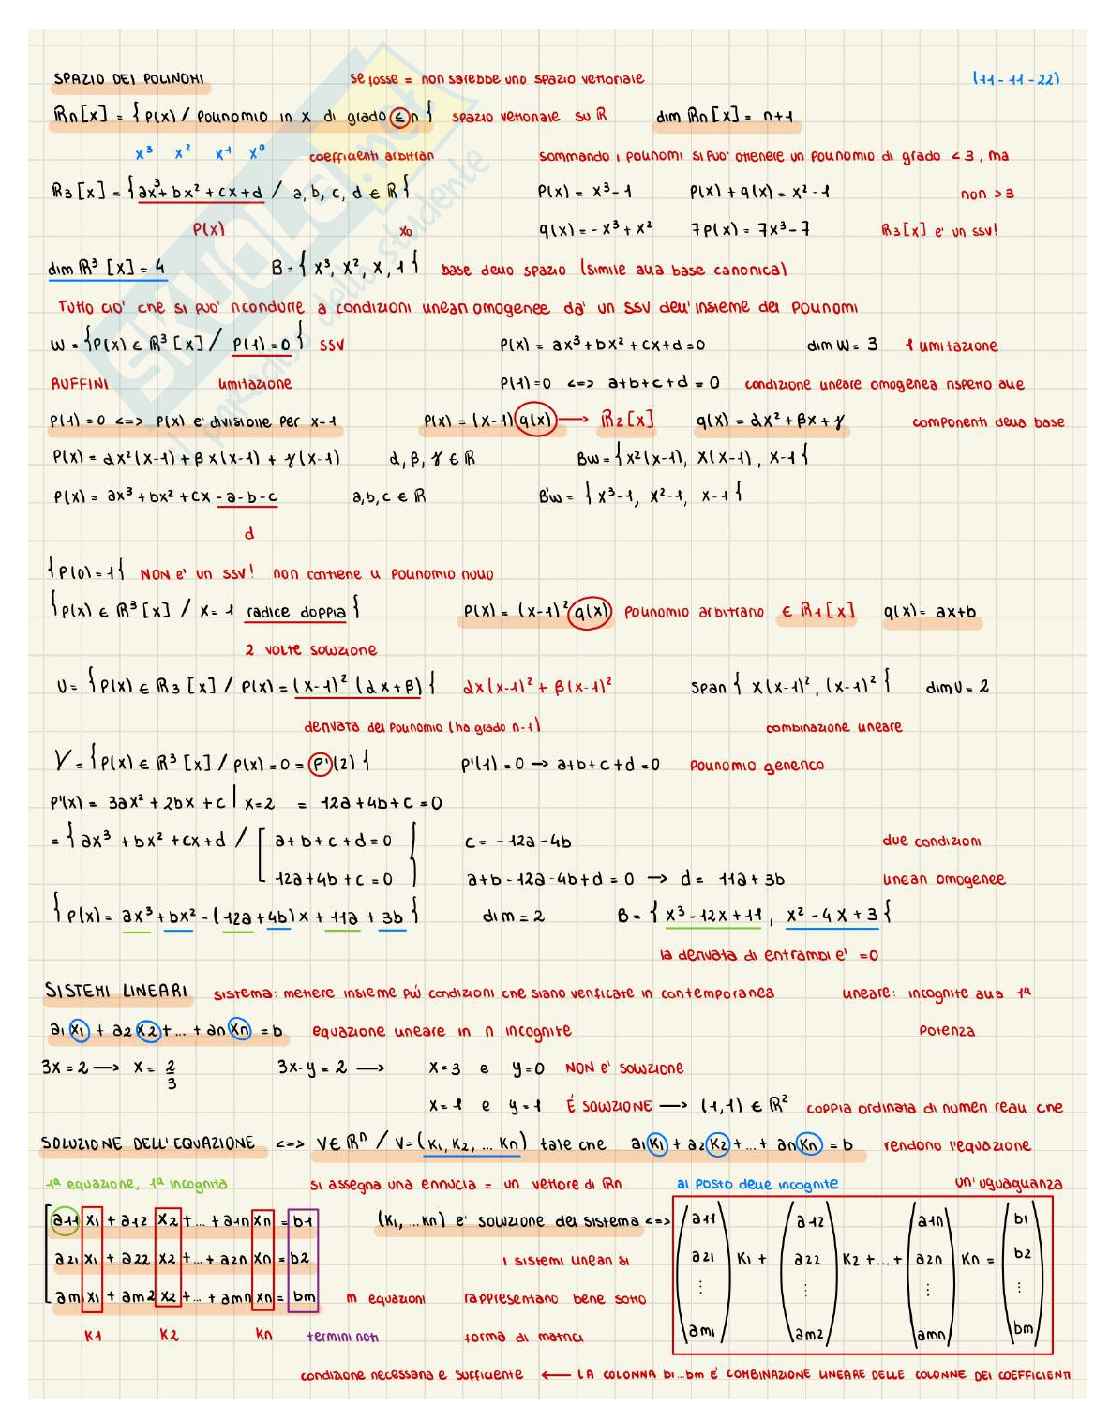 SPAZIO DEI POLINOMI se fosse = non sarebbe uno spazio vettoriale (11-11-22)
Rn[x] = {P(x) / polinomio in x di grado ≤ n} spazio vettoriale su R dim Rn[x] = n+1
x³ x² x¹ x⁰ coefficienti arbitrari sommando i polinomi si può ottenere un polinomio di grado < 3, ma
R3[x] = {ax³+bx²+cx+d / a, b, c, d ∈ R} P(x) = x³-1 P(x)+q(x) = x²-1 non > 3
P(x) x0 q(x) = -x³+x² 7P(x) = 7x³-7 R3[x] e' un ssv!
dim R³[x] = 4 B = {x³, x², x, 1} base dello spazio (simile alla base canonica)
Tutto ciò che si può ricondurre a condizioni lineari omogenee dà un SSV dell'insieme dei polinomi
W = {P(x) ∈ R³[x] / P(1)=0} SSV P(x) = ax³+bx²+cx+d=0 dim W = 3 1 limitazione
RUFFINI limitazione P(1)=0 <=> a+b+c+d = 0 condizione lineare omogenea rispetto alle
P(1)=0 <=> P(x) e' divisione per x-1 P(x) = (x-1)q(x) → R2[x] q(x) = αx²+βx+γ componenti della base
P(x) = αx²(x-1)+βx(x-1)+γ(x-1) α, β, γ ∈ R Bw = {x²(x-1), x(x-1), x-1}
P(x) = ax³+bx²+cx-a-b-c a,b,c ∈ R B'w = {x³-1, x²-1, x-1}
d
{P(0)=1} NON e' un ssv! non contiene il polinomio nullo
{P(x) ∈ R³[x] / x=1 radice doppia} P(x) = (x-1)² q(x) polinomio arbitrario ∈ R1[x] q(x) = ax+b
2 volte soluzione
U = {P(x) ∈ R3[x] / P(x) = (x-1)² (αx+β)} αx(x-1)²+β(x-1)² span {x(x-1)², (x-1)²} dimU = 2
derivata del polinomio (ha grado n-1) combinazione lineare
V = {P(x) ∈ R³[x] / P(x)=0=P'(2)} P'(1)=0 → a+b+c+d=0 polinomio generico
P'(x) = 3ax²+2bx+c | x=2 = 12a+4b+c=0
= {ax³+bx²+cx+d / [a+b+c+d=0 } c = -12a-4b due condizioni
12a+4b+c=0 a+b-12a-4b+d=0 → d = 11a+3b lineari omogenee
{P(x) = ax³+bx²-(12a+4b)x+11a+3b} dim=2 B = {x³-12x+11, x²-4x+3}
la derivata di entrambi e' =0
SISTEMI LINEARI sistema: mettere insieme più condizioni che siano verificate in contemporanea lineare: incognite alla 1ª
a1x1 + a2x2 + ... + anxn = b equazione lineare in n incognite potenza
3x=2 → x = 2/3 3x-y=2 → x=3 e y=0 NON e' soluzione
x=1 e y=1 È SOLUZIONE → (1,1) ∈ R² coppia ordinata di numeri reali che
SOLUZIONE DELL'EQUAZIONE <=> V∈Rⁿ / V=(K1, K2, ... Kn) tale che a1K1 + a2K2 + ... + anKn = b rendono l'equazione
1ª equazione, 1ª incognita si assegna una ennupla = un vettore di Rn al posto delle incognite un'uguaglianza
a11 x1 + a12 x2 + ... + a1n xn = b1 (K1, ... Kn) e' soluzione del sistema <=> (a11 a21 ⋮ am1) K1 + (a12 a22 ⋮ am2) K2 + ... + (a1n a2n ⋮ amn) Kn = (b1 b2 ⋮ bm)
a21 x1 + a22 x2 + ... + a2n xn = b2 I sistemi lineari si
am x1 + am2 x2 + ... + amn xn = bm m equazioni rappresentano bene sotto
K1 K2 Kn termini noti forma di matrici
condizione necessaria e sufficiente ← LA COLONNA b1...bm È COMBINAZIONE LINEARE DELLE COLONNE DEI COEFFICIENTI